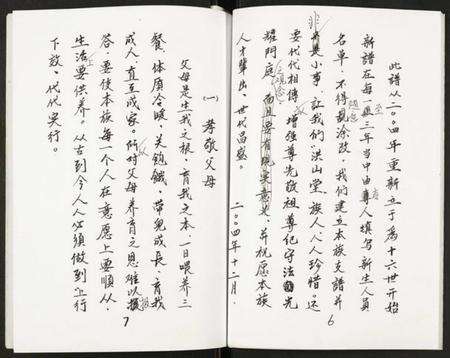 此譜从二〇〇年重新立于為十六世开始
新譜在每一至三年当中由專人填写新生人員
名单，不得乱涂改，我们建立本族支譜并
非小事，让我们洪山堂族人，人人珍惜。还
要代代相傳，增強尊先敬祖尊纪守法，光
耀門庭，而且要有　意义，并祝愿本族
人才輩出，世代昌盛。
二〇〇四年十二月
6
(一) 孝敬父母
父母是生我之根，育我之本一日喂养三
餐，体质冷暖，关　饥餓，帶兒成長，育我
成人，直互成家。所对父母养育之恩难以報
答，要使本族每一个人在意愿上要順从，
生活要供养。从古到今人人必須做到上行
下效，代代实行。
7